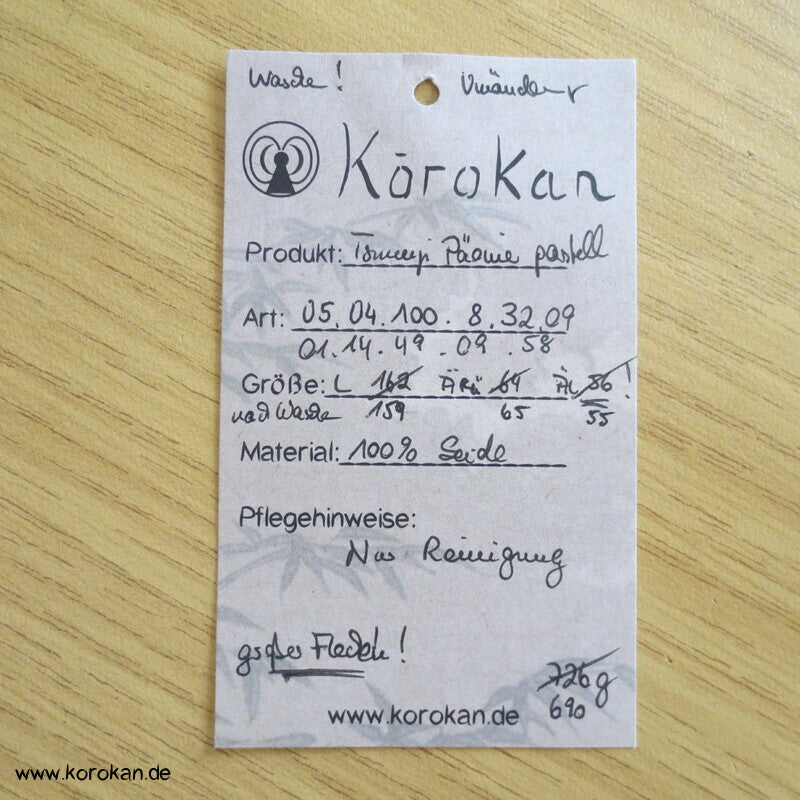 Wäsche!
Kōrokan
Produkt: Tsumugi Päonie pastell
Art: 05.04.100.8.32.09
01.14.49.09.58
Größe: L 162 ÄRü 64 ÄL 56!
nach Wäsche 159 65 55
Material: 100% Seide
Pflegehinweise:
Nur Reinigung
großer Fleck!
726 g
690
www.korokan.de
www.korokan.de